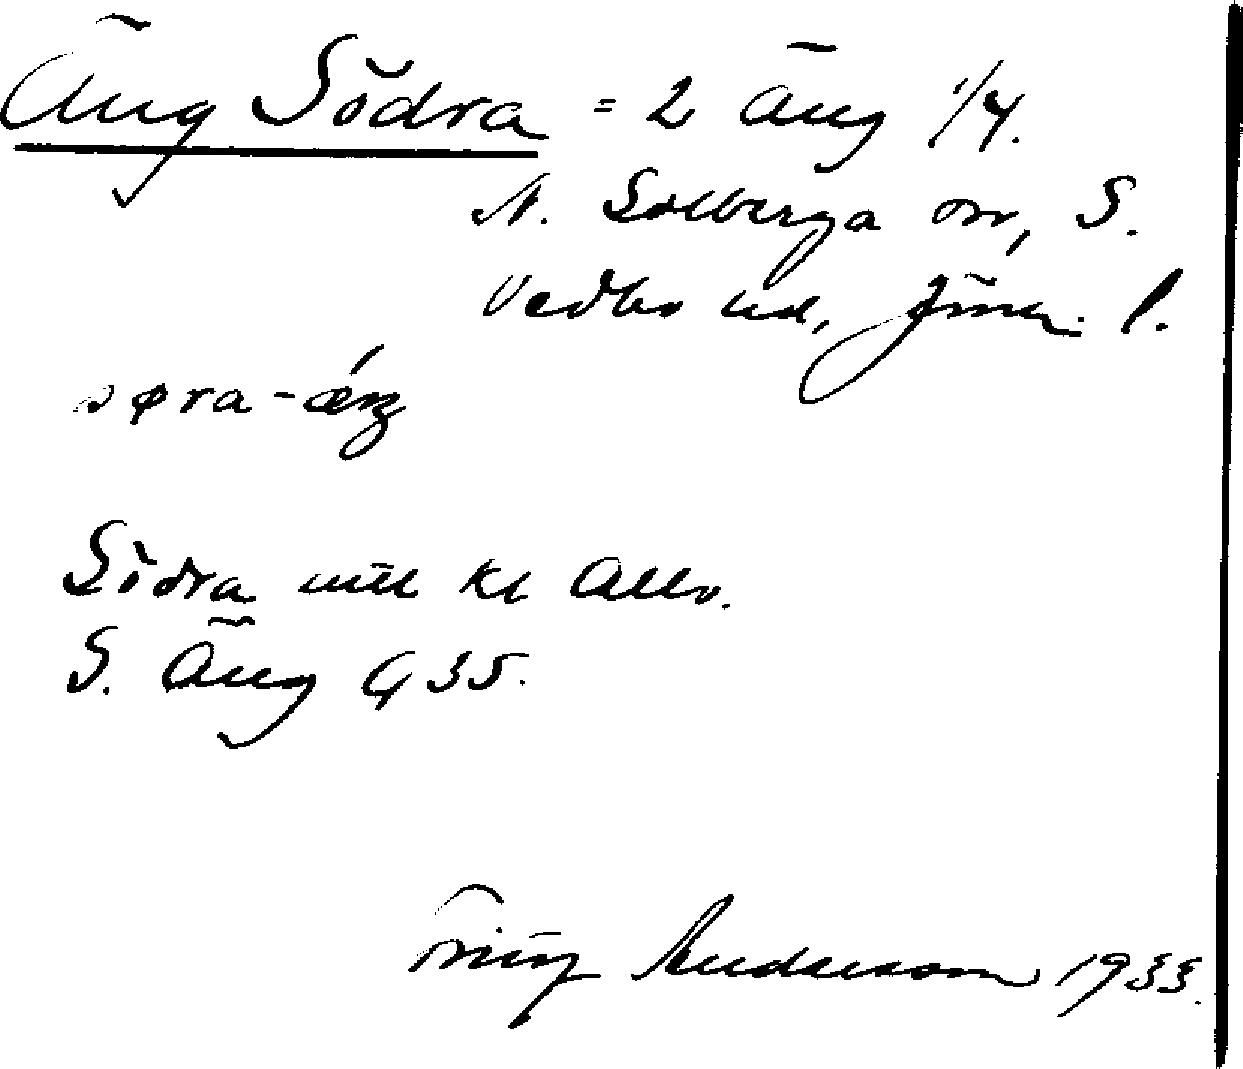 Äng Södra = 2 Äng 1/4.
N. Solberga sn, S.
Vedbo hd, Jönk. l.
søra-ǽŋ
Södra mtl Kt Allm.
S. Äng G 35.
Anderson 1933.